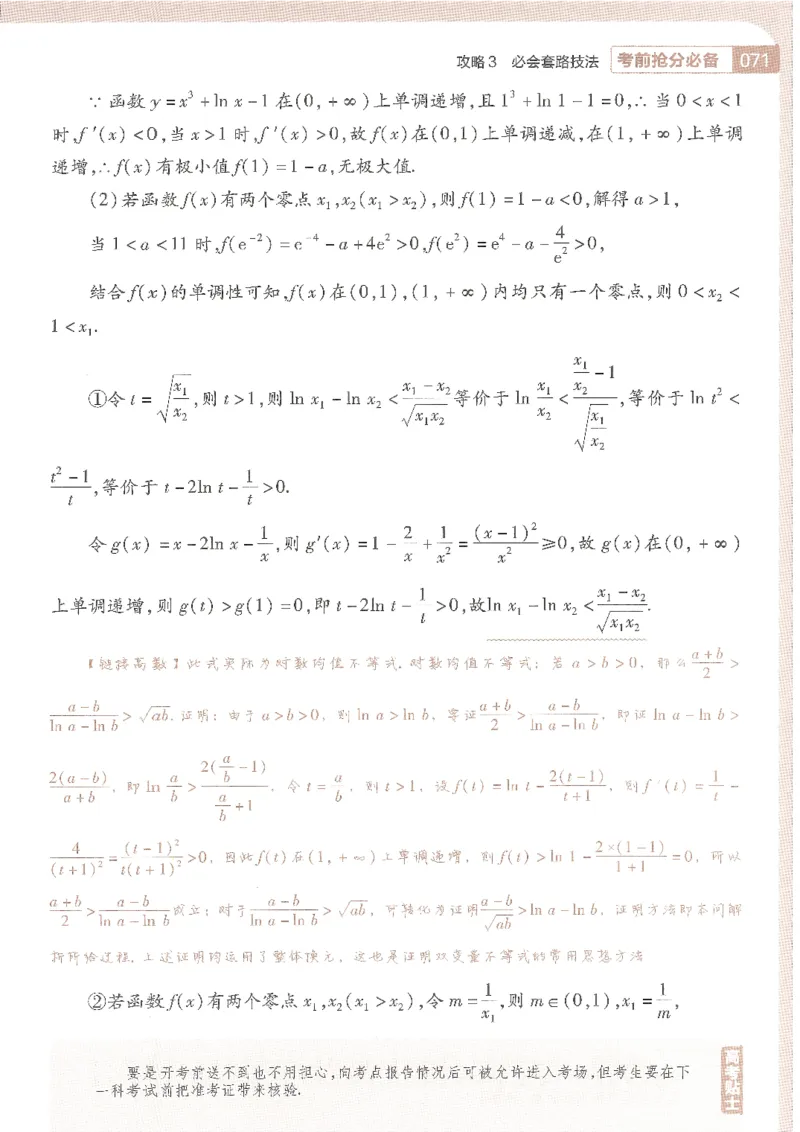 攻略3 必会套路技法 考前抢分必备 071
∵函数y=x³+ln x-1在(0,+∞)上单调递增,且1³+ln 1-1=0,∴当0<x<1
时,f′(x)<0,当x>1时,f′(x)>0,故f(x)在(0,1)上单调递减,在(1,+∞)上单调
递增,∴f(x)有极小值f(1)=1-a,无极大值.
(2)若函数f(x)有两个零点x₁,x₂(x₁>x₂),则f(1)=1-a<0,解得a>1,
当1<a<11时,f(e⁻²)=e⁻⁴-a+4e²>0,f(e²)=e⁴-a-4/e²>0,
结合f(x)的单调性可知,f(x)在(0,1),(1,+∞)内均只有一个零点,则0<x₂<
1<x₁.
①令t=√(x₁/x₂),则t>1,则ln x₁-ln x₂<(x₁-x₂)/√(x₁x₂)等价于ln x₁/x₂<(x₁/x₂-1)/√(x₁/x₂),等价于ln t²<
(t²-1)/t,等价于t-2ln t-1/t>0.
令g(x)=x-2ln x-1/x,则g′(x)=1-2/x+1/x²=(x-1)²/x²≥0,故g(x)在(0,+∞)
上单调递增,则g(t)>g(1)=0,即t-2ln t-1/t>0,故ln x₁-ln x₂<(x₁-x₂)/√(x₁x₂).
【链接高数】此式实际为对数均值不等式.对数均值不等式:若a>b>0,那么(a+b)/2>
(a-b)/(ln a-ln b)>√(ab).证明:由于a>b>0,则ln a>ln b,要证(a+b)/2>(a-b)/(ln a-ln b),即证ln a-ln b>
2(a-b)/(a+b),即ln a/b>2(a/b-1)/(a/b+1),令t=a/b,则t>1,设f(t)=ln t-2(t-1)/(t+1),则f′(t)=1/t-
4/(t+1)²=(t-1)²/t(t+1)²>0,因此f(t)在(1,+∞)上单调递增,则f(t)>ln 1-2×(1-1)/(1+1)=0,所以
(a+b)/2>(a-b)/(ln a-ln b)成立;对于(a-b)/(ln a-ln b)>√(ab),可转化为证明(a-b)/√(ab)>ln a-ln b,证明方法即本问解
析所给过程.上述证明均运用了整体换元,这也是证明双变量不等式的常用思想方法
②若函数f(x)有两个零点x₁,x₂(x₁>x₂),令m=1/x₁,则m∈(0,1),x₁=1/m,
要是开考前送不到也不用担心,向考点报告情况后可被允许进入考场,但考生要在下
一科考试前把准考证带来核验.
高考贴士